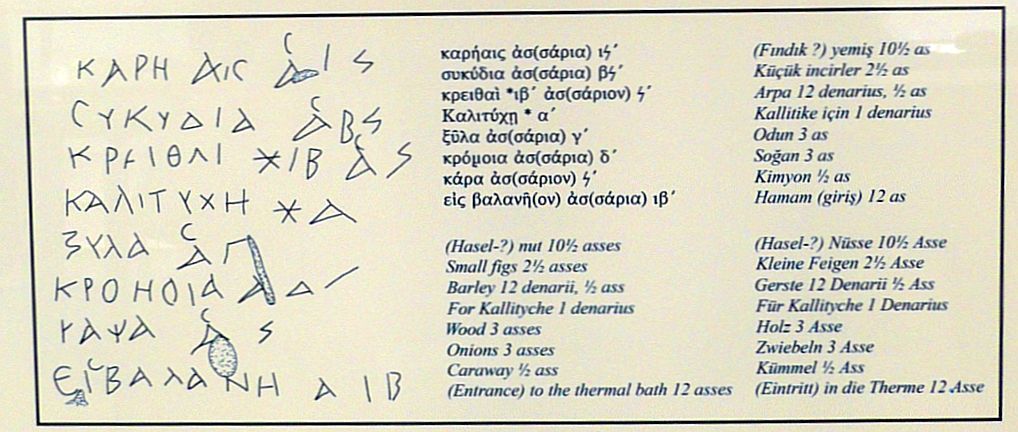 ΚΑΡΗ ΑΙϹ Α Ι S
ϹΥΚΥΔΙΑ Α Β S
ΚΡΕΙΘΑΙ ✳ΙΒ Α S
ΚΑΛΙΤΥΧΗ ✳Α
ΞΥΛΑ Α Γ
ΚΡΟΜΟΙΑ Α Δ
ΕΙϹΒΑΛΑΝΗ Α ΙΒ
καρήαις ἀσ(σάρια) ιϟ´
συκύδια ἀσ(σάρια) βϟ´
κρειθαὶ *ιβ´ ἀσ(σάριον) ϟ´
Καλιτύχῃ * α´
ξῦλα ἀσ(σάρια) γ´
κρόμοια ἀσ(σάρια) δ´
κάρα ἀσ(σάριον) ϟ´
εἰς βαλανῆ(ον) ἀσ(σάρια) ιβ´
(Fındık ?) yemiş 10½ as
Küçük incirler 2½ as
Arpa 12 denarius, ½ as
Kallitike için 1 denarius
Odun 3 as
Soğan 3 as
Kimyon ½ as
Hamam (giriş) 12 as
(Hasel-?) nut 10½ asses
Small figs 2½ asses
Barley 12 denarii, ½ ass
For Kallityche 1 denarius
Wood 3 asses
Onions 3 asses
Caraway ½ ass
(Entrance) to the thermal bath 12 asses
(Hasel-?) Nüsse 10½ Asse
Kleine Feigen 2½ Asse
Gerste 12 Denarii ½ Ass
Für Kallityche 1 Denarius
Holz 3 Asse
Zwiebeln 3 Asse
Kümmel ½ Ass
(Eintritt) in die Therme 12 Asse